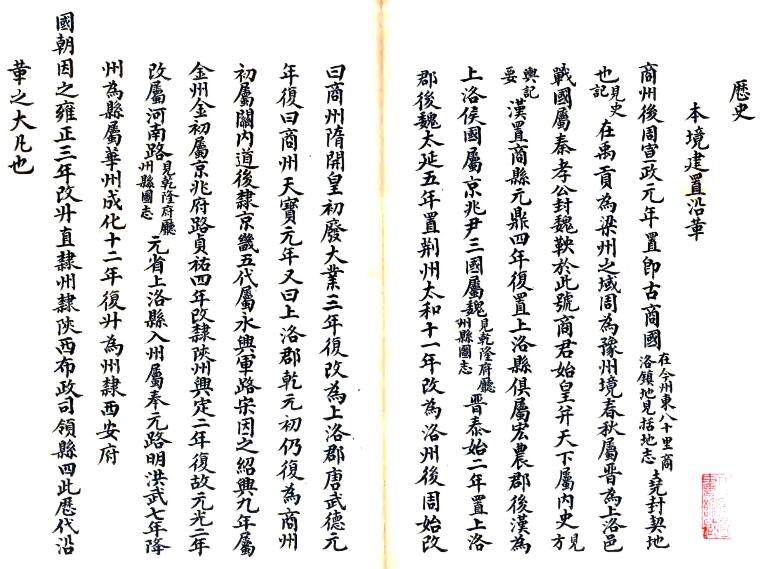 歷史
本境建置沿革
商州後周宣政元年置即古商國在今州東八十里商洛鎮地見括地志堯封契地
也見史記在禹貢為梁州之域周為豫州境春秋屬晉為上洛邑
戰國屬秦孝公封魏鞅於此號商君始皇并天下屬內史見方
輿記要漢置商縣元鼎四年復置上洛縣俱屬宏農郡後漢為
上洛侯國屬京兆尹三國屬魏見乾隆府廳州縣圖志晉泰始二年置上洛
郡後魏太延五年置荊州太和十一年改為洛州後周始改
曰商州隋開皇初廢大業三年復改為上洛郡唐武德元
年復曰商州天寶元年又曰上洛郡乾元初仍復為商州
初屬關內道後隸京畿五代屬永興軍路宋因之紹興九年屬
金州金初屬京兆府路貞祐四年改隸陝州興定二年復故元光二年
改屬河南路見乾隆府廳州縣圖志元省上洛縣入州屬奉元路明洪武七年降
州為縣屬華州成化十二年復升為州隸西安府
國朝因之雍正三年改升直隸州隸陝西布政司領縣四此歷代沿
革之大凡也